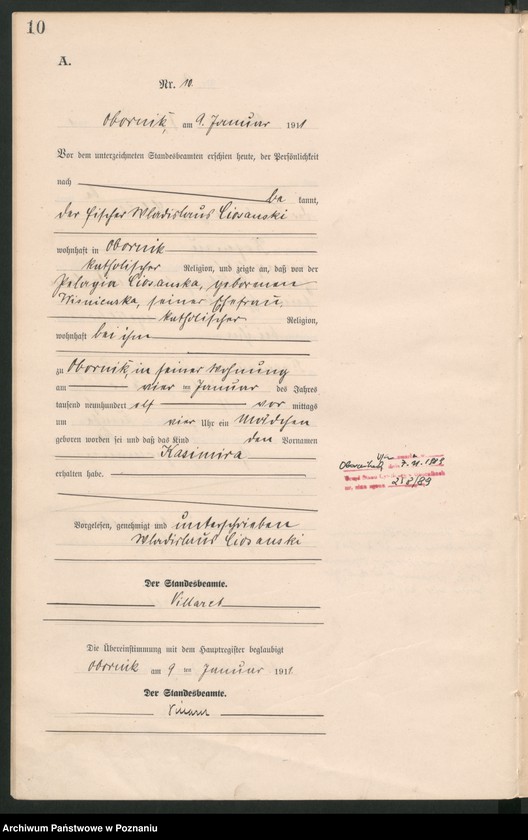 10
A.
Nr. 10
Obornik, am 9. Januar 1911
Vor dem unterzeichneten Standesbeamten erschien heute, der Persönlichkeit
nach be kannt,
der Fischer Wladislaus Ciosanski
wohnhaft in Obornik
katholischer Religion, und zeigte an, daß von der
Pelagia Ciosanska, geborenen
Wisniewska, seiner Ehefrau,
katholischer Religion,
wohnhaft bei ihm
zu Obornik, in seiner Wohnung
am vier ten Januar des Jahres
tausend neunhundert elf vor mittags
um vier Uhr ein Mädchen
geboren worden sei und daß das Kind den Vornamen
Kasimira
erhalten habe.
Vorgelesen, genehmigt und unterschrieben
Wladislaus Ciosanski
Der Standesbeamte.
Villaret
Die Übereinstimmung mit dem Hauptregister beglaubigt
Obornik am 9 ten Januar 1911
Der Standesbeamte.
Villaret
218/89
Archiwum Państwowe w Poznaniu